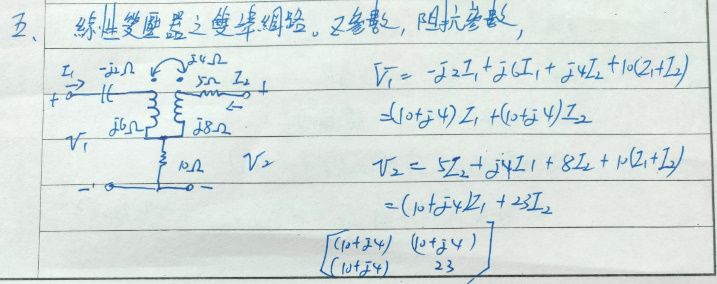 五、線性變壓器之雙埠網路。Z參數, 阻抗參數,
-j2Ω j4Ω 5Ω
I₁ I₂
+ +
j6Ω j8Ω
V₁ 10Ω V₂
- -
V₁ = -j2I₁ + j6I₁ + j4I₂ + 10(I₁+I₂)
= (10+j4)I₁ + (10+j4)I₂
V₂ = 5I₂ + j4I₁ + 8I₂ + 10(I₁+I₂)
= (10+j4)I₁ + 23I₂
[(10+j4) (10+j4)
(10+j4) 23]